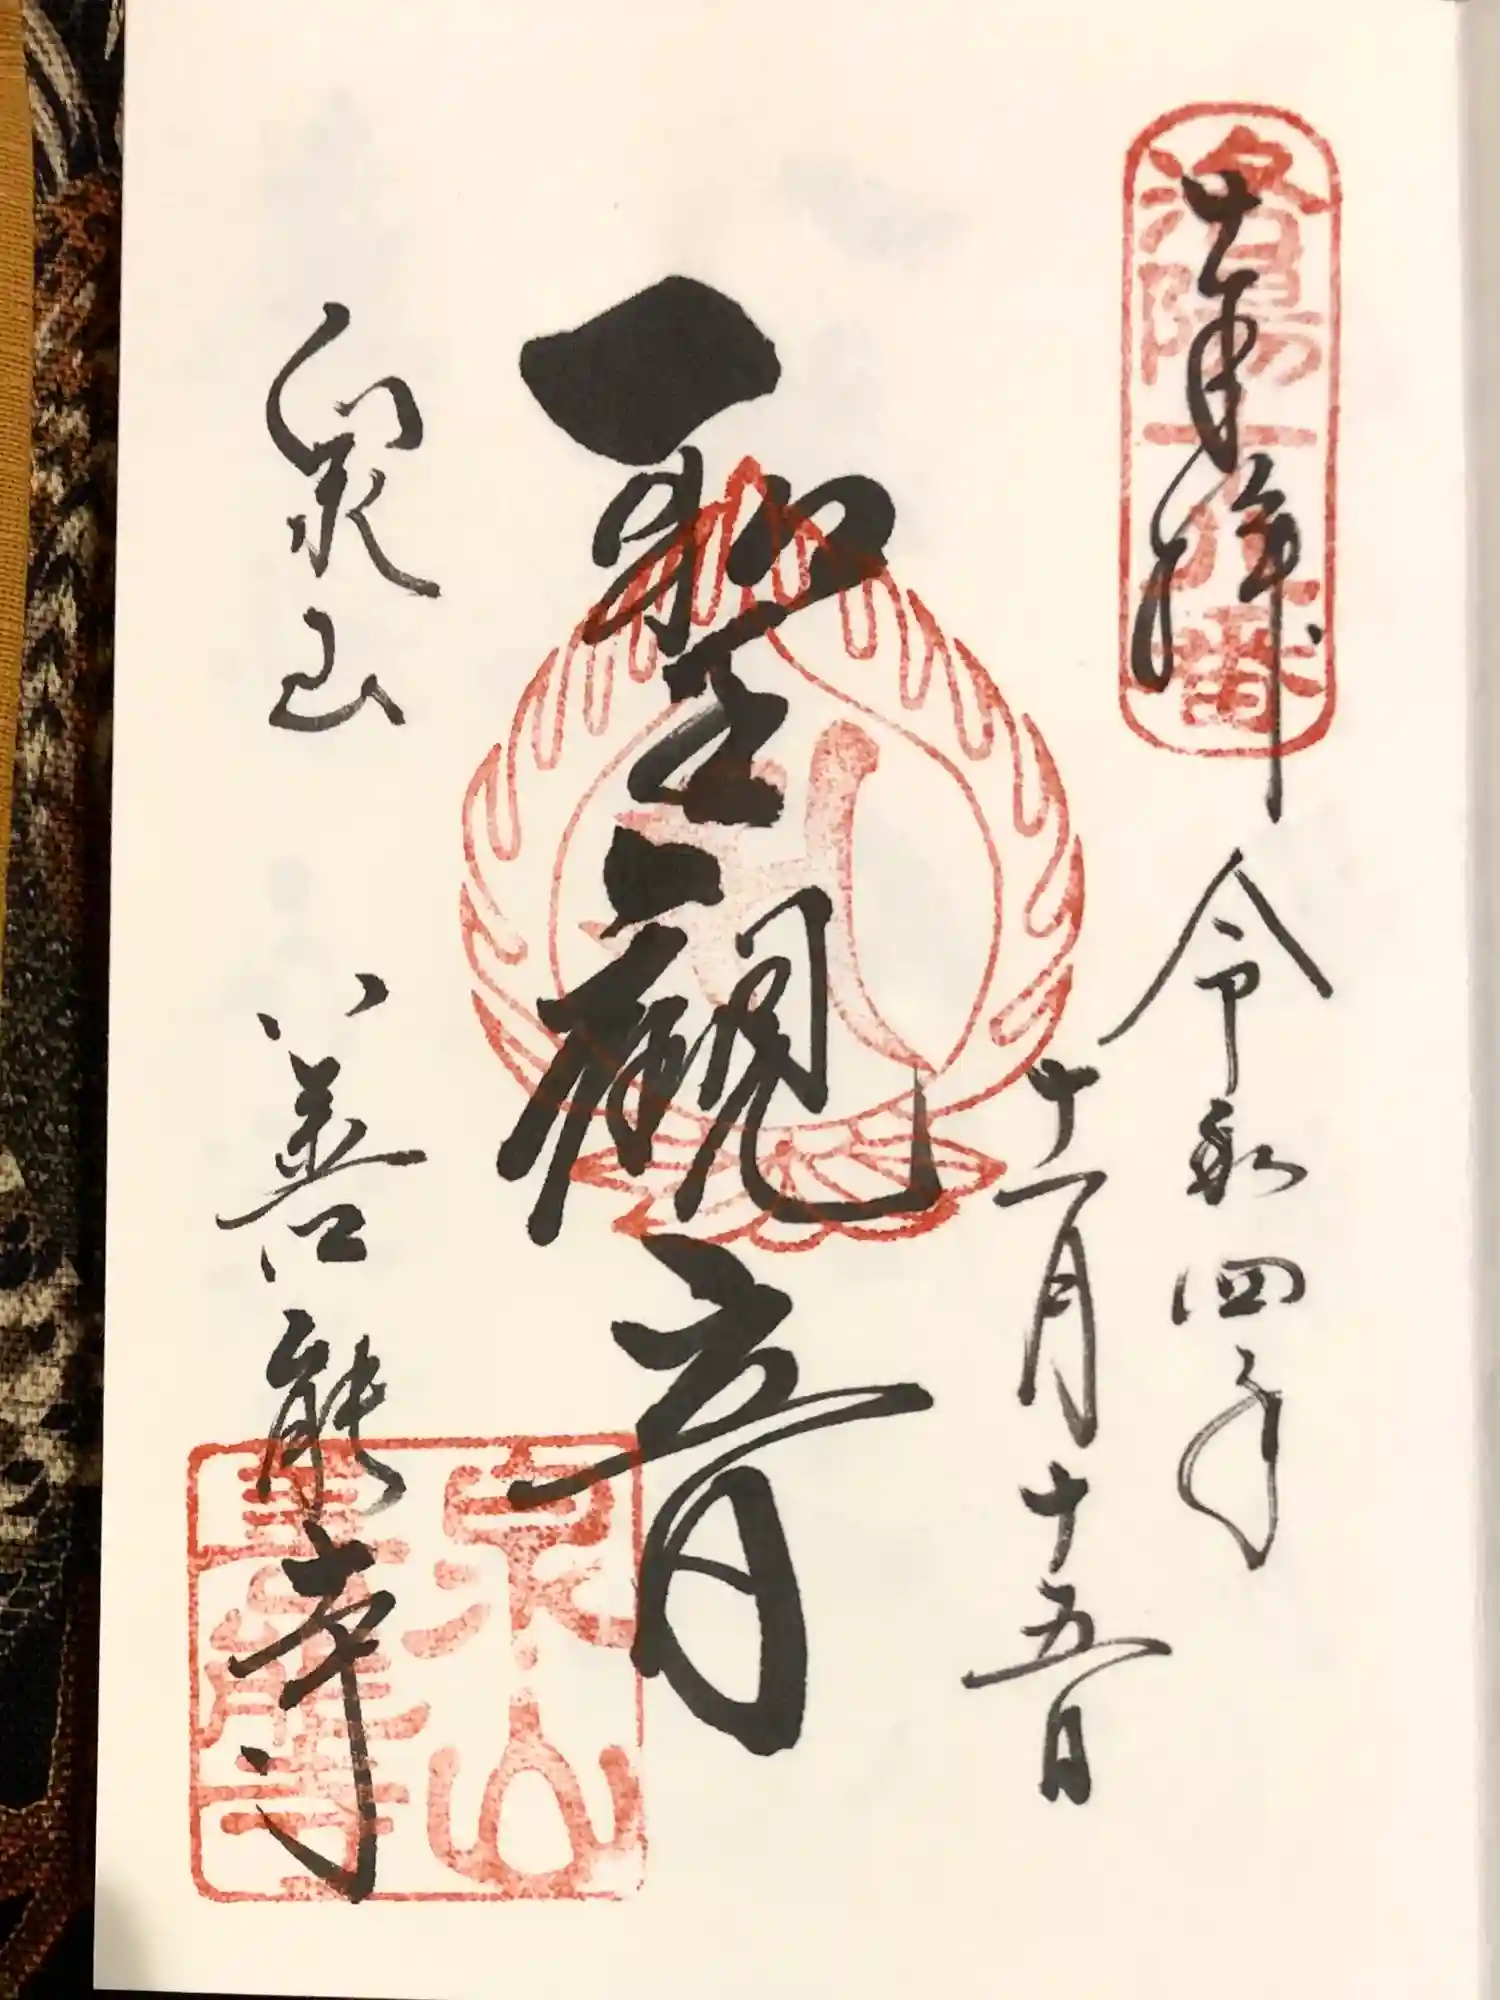 奉拝
洛陽十八番
令和四年
十一月十五日
聖観音
泉山
善能寺
泉山
善能寺